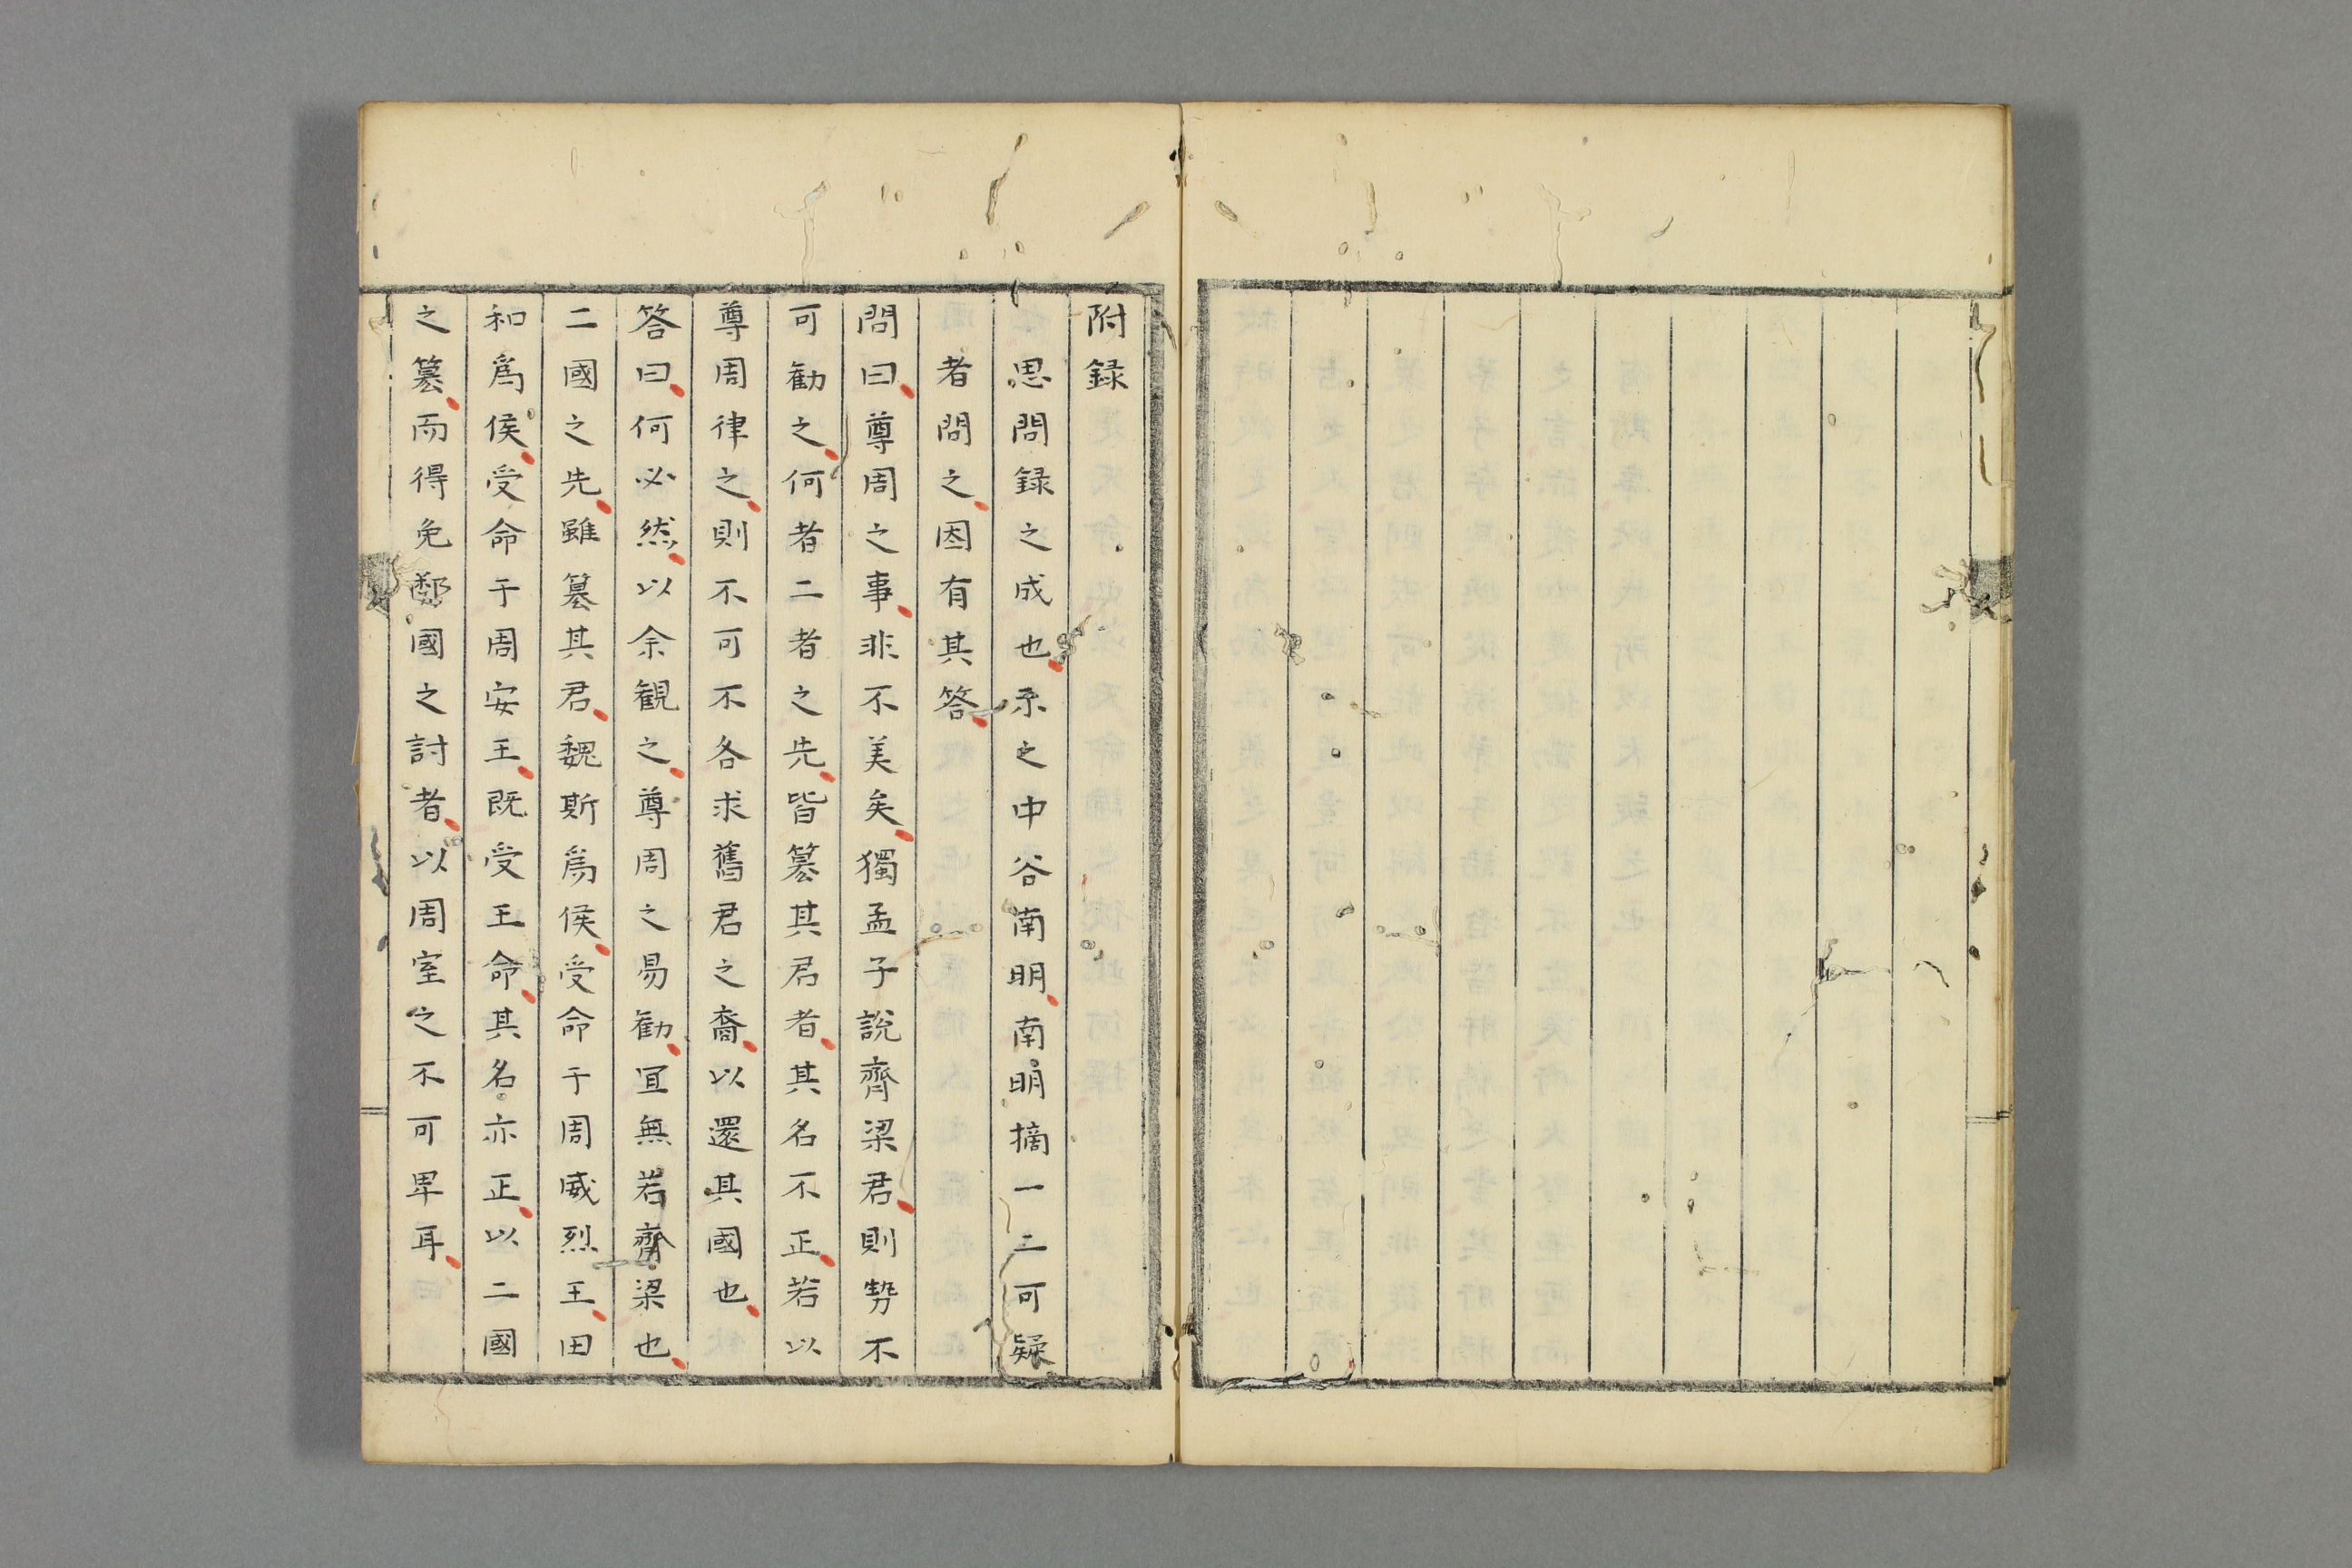 附録
思問録之成也示之中谷南明南明摘一二可疑
者問之因有其答
問曰尊周之事非不美矣獨孟子說齊梁君則勢不
可勧之何者二者之先皆簒其君者其名不正若以
尊周律之則不可不各求舊君之裔以還其國也
答曰何必然以余観之尊周之易勧宜無若齊梁也
二國之先雖簒其君魏斯爲侯受命于周威烈王田
和爲侯受命于周安王既受王命其名亦正以二國
之簒而得免鄰國之討者以周室之不可卑耳